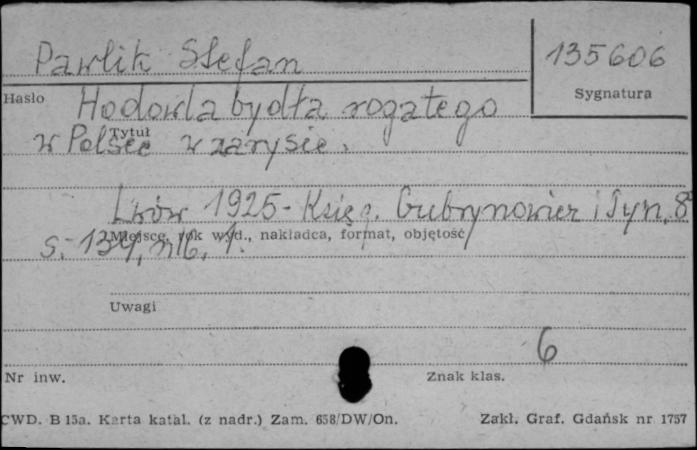 Pawlik Stefan
135606
Sygnatura
Hasło
Hodowla bydła rogatego
Tytuł
w Polsce w zarysie.
Lwów 1925 - Księg. Gubrynowicz i Syn, 8°
Miejsce, rok wyd., nakładca, format, objętość
s.
Uwagi
6
Nr inw.
Znak klas.
CWD. B 15a. Karta katal. (z nadr.) Zam. 658/DW/On.
Zakł. Graf. Gdańsk nr 1757